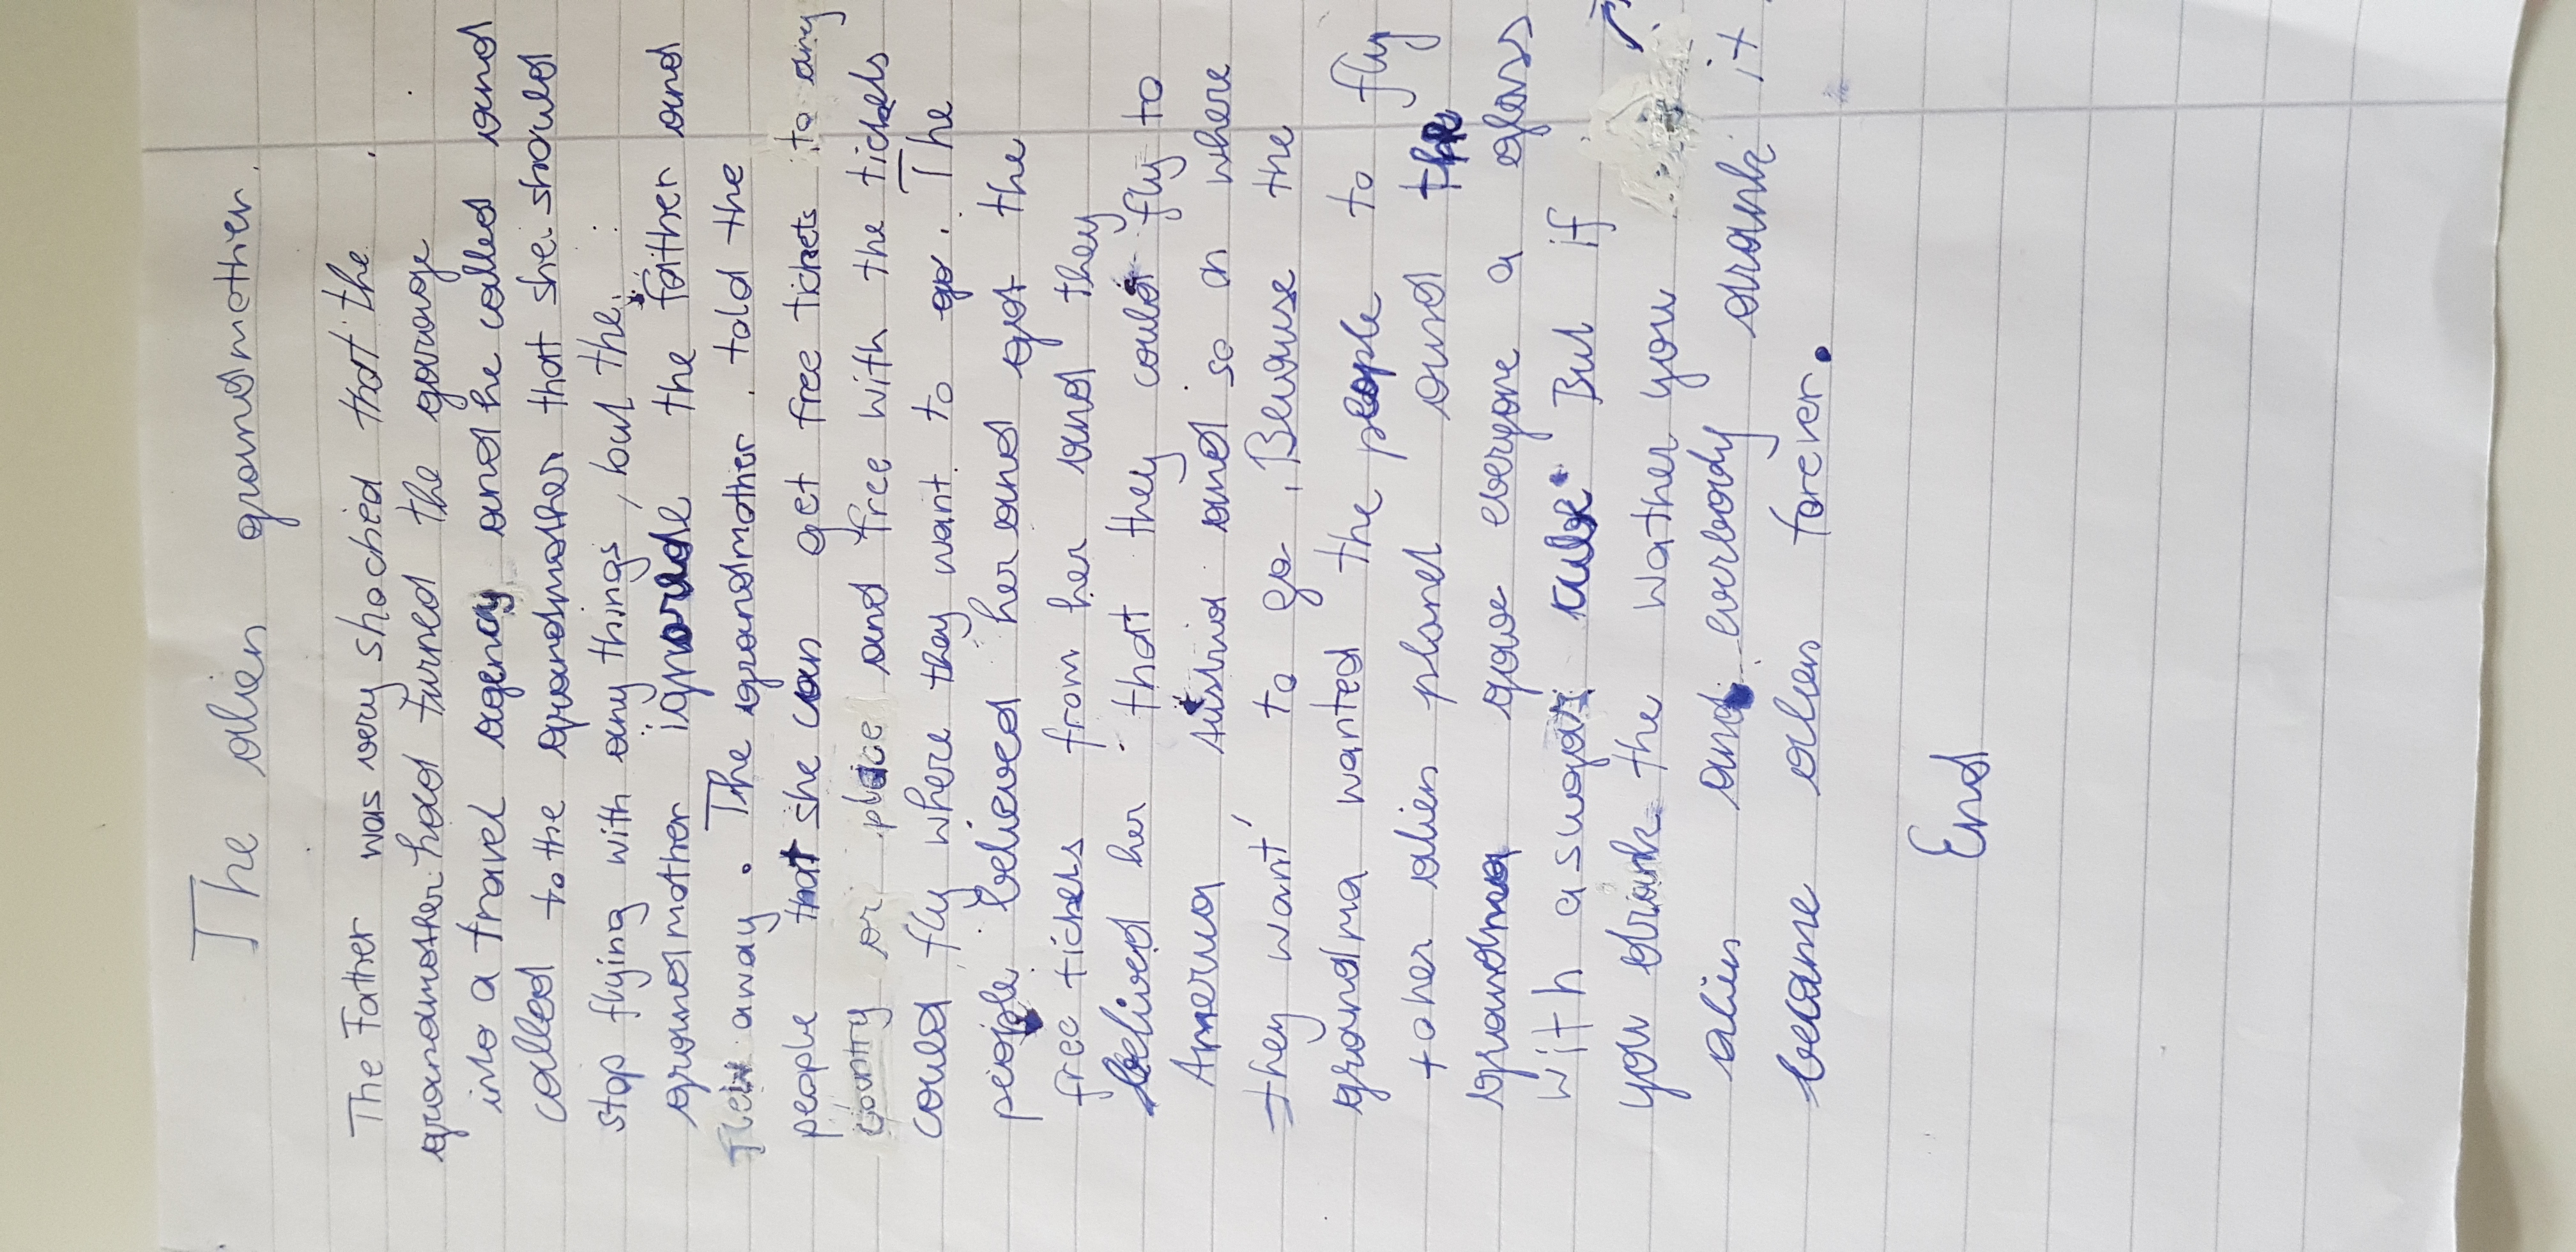 The alien grandmother.
The Father was very shocked that the
grandmother had turned the garage
into a travel agency and he called and
called to the grandmother that she should
stop flying with any things, but the
grandmother ignorde the father and
flew away. The grandmother told the
people that she can get free tickets to any
country or place and free with the tickets
could fly where they want to go. The
people believed her and got the
free tickets from her and they
belived her that they could fly to
America Austria and so on where
they want to go, Beause the
grandma wanted the people to fly
to her alien planet and the
grandma gave everyone a glass
with a sugar cube. But if
you drank the wather you
alien and everbody drank it
became alien forever.
End